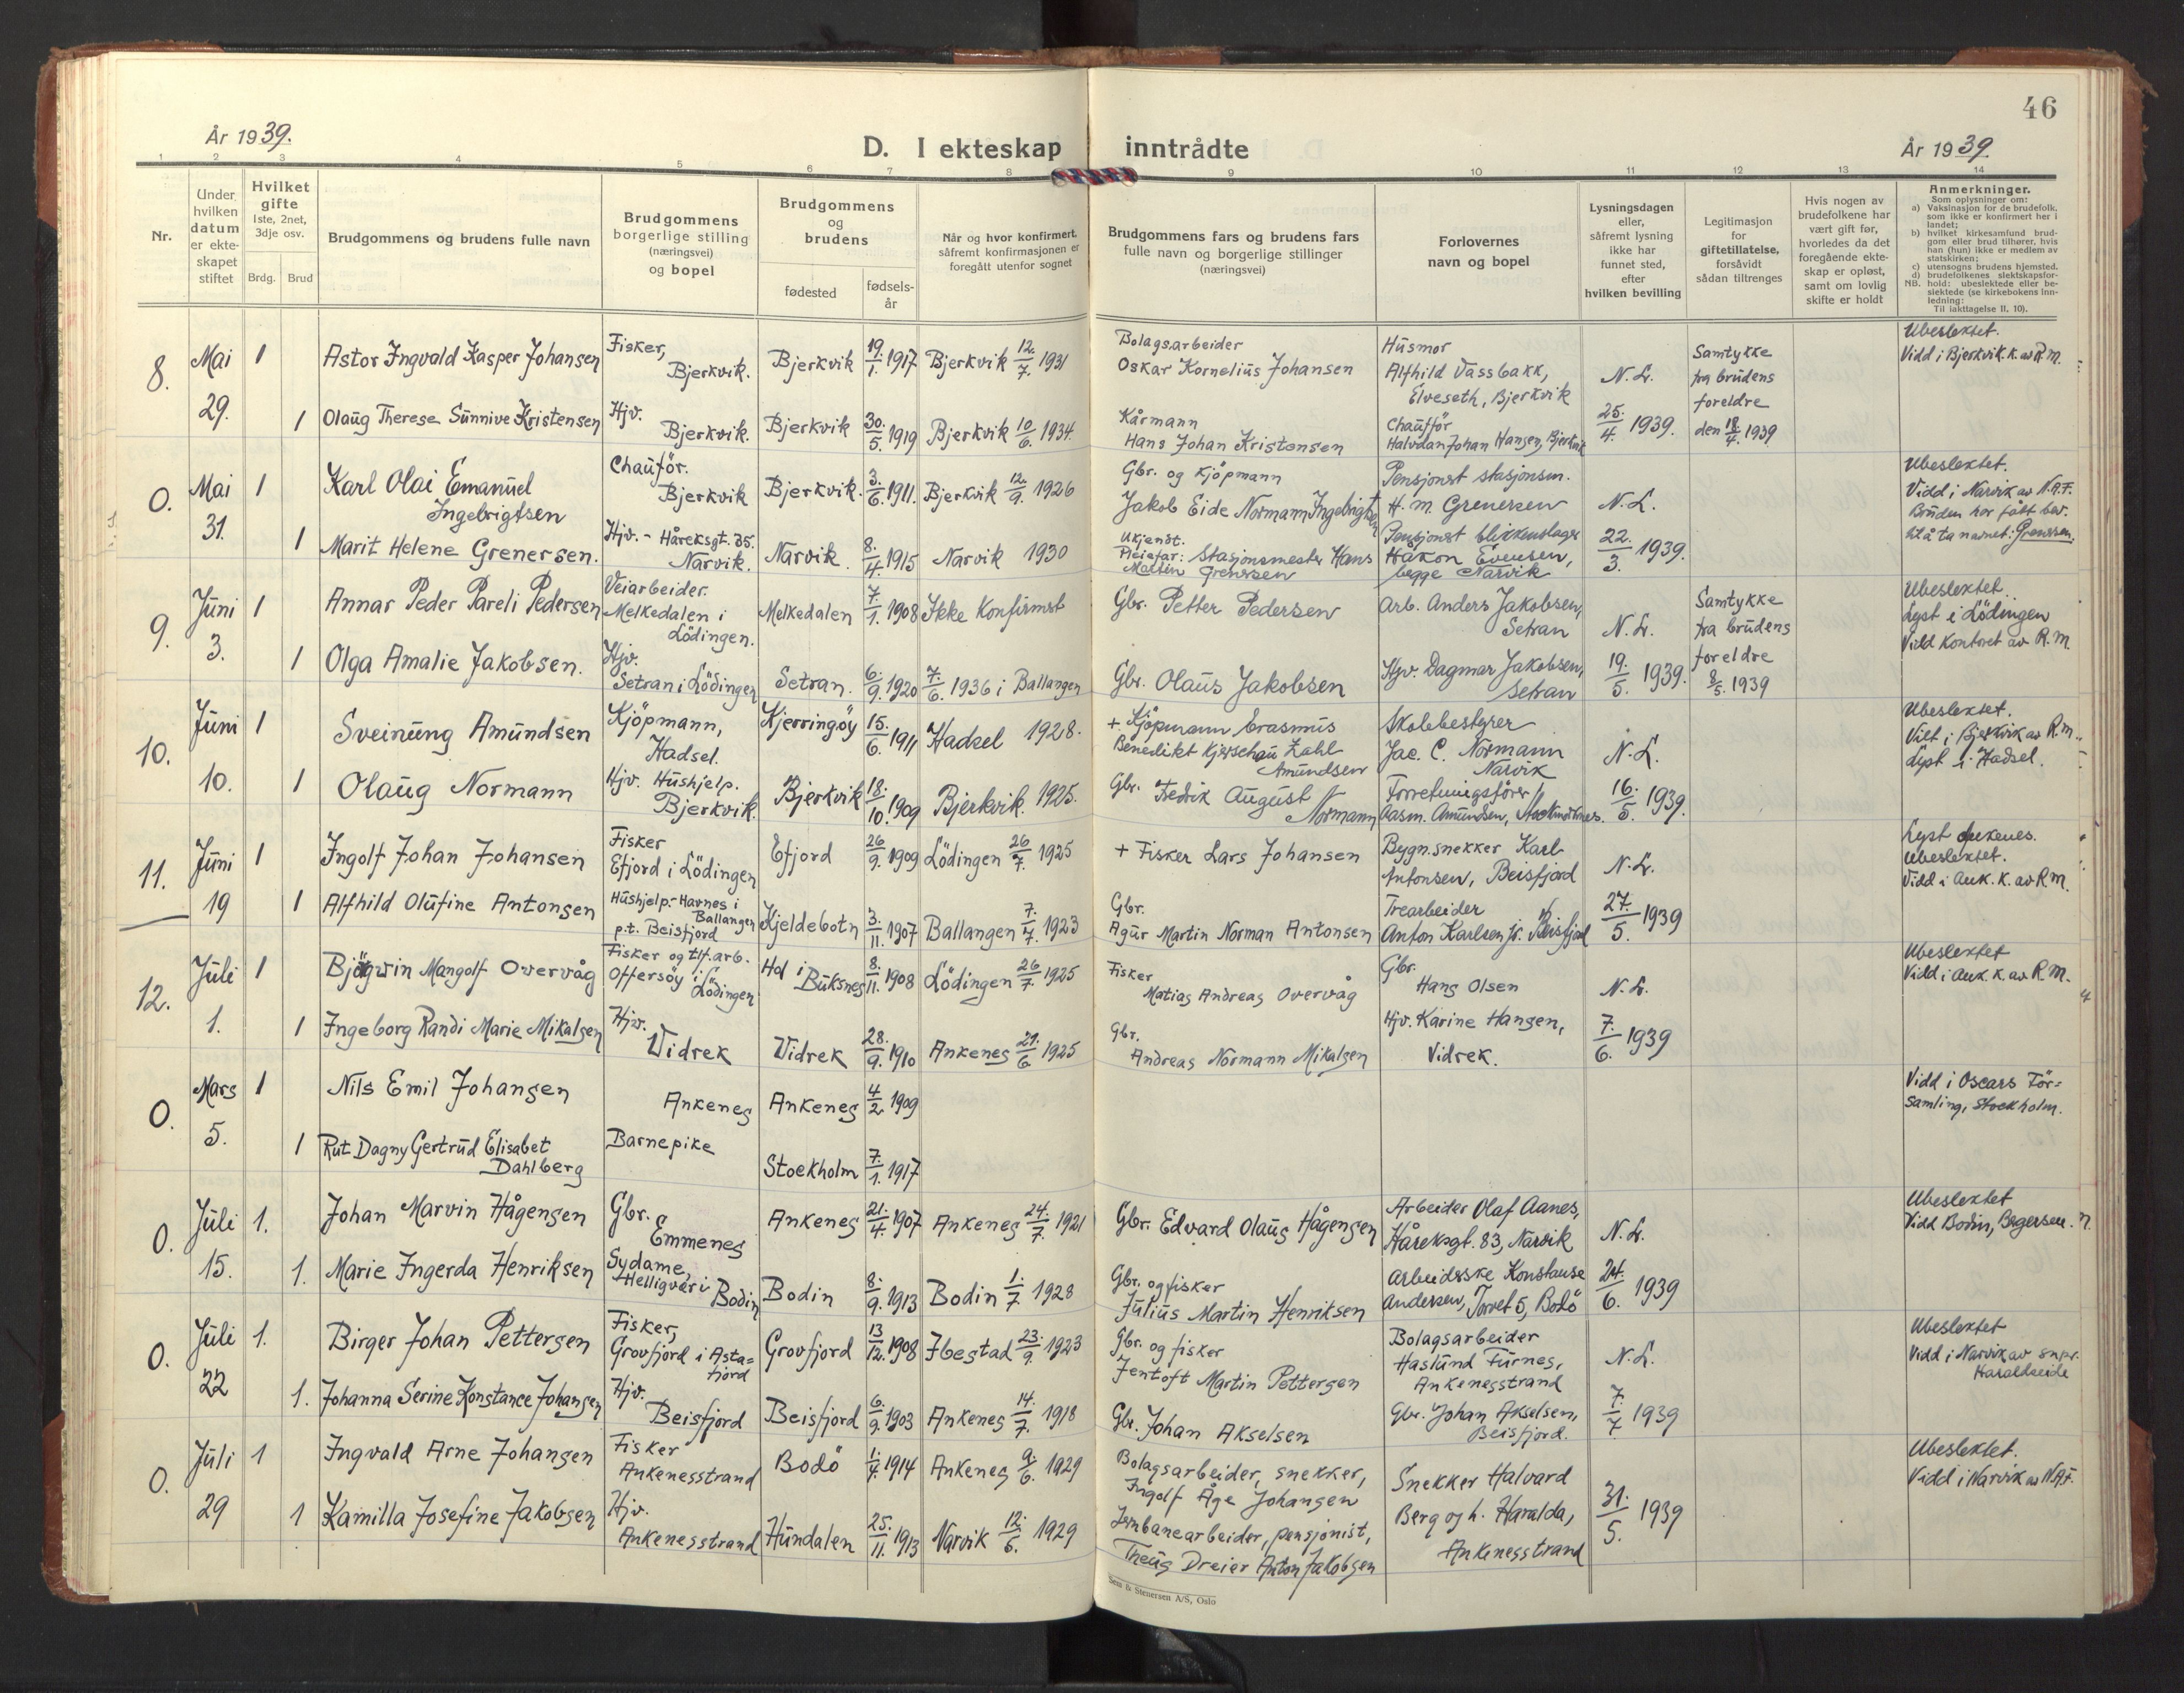 46
År 1939.
D. I ekteskap inntrådte
År 1939.
1 2 3 4 5 6 7 8 9 10 11 12 13 14
Nr.
Under hvilken datum er ekteskapet stiftet
Hvilket gifte
1ste, 2net, 3dje osv.
Brdg. Brud
Brudgommens og brudens fulle navn
Brudgommens borgerlige stilling (næringsvei) og bopel
Brudgommens og brudens
fødested
fødselsår
Når og hvor konfirmert, såfremt konfirmasjonen er foregått utenfor sognet
Brudgommens fars og brudens fars fulle navn og borgerlige stillinger (næringsvei)
Forlovernes navn og bopel
Lysningsdagen eller, såfremt lysning ikke har funnet sted, efter hvilken bevilling
Legitimasjon for giftetillatelse, forsåvidt sådan tiltrenges
Hvis nogen av brudefolkene har vært gift før, hvorledes da det foregående ekteskap er opløst, samt om lovlig skifte er holdt
Anmerkninger.
Som oplysninger om:
a) Vaksinasjon for de brudefolk, som ikke er konfirmert her i landet;
b) hvilket kirkesamfund brudgom eller brud tilhører, hvis han (hun) ikke er medlem av statskirken;
c) utensogns brudens hjemsted.
d) brudefolkenes slektskapsforhold: ubeslektede eller beslektede (se kirkebokens innledning:
NB. Til iakttagelse II, 10).
8. Mai 29. 1 Astor Ingvald Kasper Johansen
Fisker, Bjerkvik.
Bjerkvik 19/1. 1917 Bjerkvik 12/7. 1931
Bolagsarbeider
Oskar Kornelius Johansen
Husmor
Alfhild Vassbakk,
Elveseth, Bjerkvik
N.L.
25/4. 1939.
Samtykke
fra brudens
foreldre
den 18/4. 1939
Ubeslektet.
Vidd i Bjerkvik k. av R.M.
1 Olaug Therese Sunnive Kristensen
Hjv. Bjerkvik.
Bjerkvik 30/5 1919 Bjerkvik 10/6. 1934.
Kårmann
Hans Johan Kristensen
Chauffør
Halvdan Johan Hansen, Bjerkvik
0. Mai 31. 1 Karl Olai Emanuel
Ingebrigtsen
Chauför. Bjerkvik
Bjerkvik. 3/6. 1911. Bjerkvik 12/9. 1926
Gbr. og Kjöpmann
Jakob Eide Normann Ingebrigtsen
Pensjonert stasjonsm.
H. M. Grenersen
N.L.
22/3. 1939.
Ubeslektet.
Vidd i Narvik av N.A.F.
Bruden har fått bev.
til å ta navnet: Grenersen.
1 Marit Helene Grenersen.
Hjv. - Håreksgt. 35.
Narvik.
Narvik 8/4. 1915 Narvik 1930
Ukjendt.
Pleiefar: Stasjonsmester Hans
Martin Grenersen
Pensjonert blikkenslager
Håkon Evensen,
begge Narvik
9. Juni 3. 1 Annar Peder Pareli Pedersen
Veiarbeider.
Melkedalen i
Lödingen.
Melkedalen 7/1. 1908 Ikke Konfirmert
Gbr. Petter Pedersen
Arb. Anders Jakobsen,
Setran
N.L.
19/5. 1939.
Samtykke
fra brudens
foreldre
8/5. 1939
Ubeslektet.
Lyst i Lödingen
Vidd kontoret av R.M.
1 Olga Amalie Jakobsen.
Hjv.
Setran i Lödingen
Setran. 6/9. 1920 7/6. 1936 i Ballangen
Gbr. Olaus Jakobsen
Hjv. Dagmar Jakobsen,
Setran
10. Juni 10. 1 Sveinung Amundsen
Kjöpmann,
Hadsel.
Kjerringöy 15/6. 1911 Hadsel 1928.
+ Kjöpmann Erasmus
Benedikt Kjerschau Zahl
Amundsen
Skolebestyrer
Jac. C. Normann
Narvik
N.L.
16/5. 1939.
Ubeslektet.
Vilt i Bjerkvik av R.M.
Lyst i Hadsel.
1 Olaug Normann
Hjv. Hushjelp.
Bjerkvik.
Bjerkvik 18/10. 1909 Bjerkvik. 1925.
Gbr. Fredrik August
Normann
Forretningsförer
Aasm. Amundsen,
11. Juni 19 1 Ingolf Johan Johansen
Fisker
Efjord i Lödingen
Efjord 26/9. 1909 Lödingen 26/7. 1925
+ Fisker Lars Johansen
Bygn.snekker Karl
Antonsen, Beisfjord
N.L.
27/5. 1939
Lyst Ankenes.
Ubeslektet.
Vidd i Ank. k. av R.M.
1 Alfhild Olufine Antonsen
Hushjelp.- Havnes i
Ballangen
p.t. Beisfjord
Kjeldebotn 3/11. 1907 Ballangen 7/7. 1923
Gbr.
Agur Martin Norman Antonsen
Trearbeider
Anton Karlsen jr. Beisfjord
12. Juli 1. 1 Björgvin Mangolf Overvåg
Fisker og tlf.arb.
Offersöy i
Lödingen
Hol i
Buksnes 8/11. 1908 Lödingen 26/7 1925
Fisker
Matias Andreas Overvåg
Gbr.
Hans Olsen
N.L.
7/6. 1939
Ubeslektet
Vidd i Ank. k. av R.M.
1 Ingeborg Randi Marie Mikalsen
Hjv.
Vidrek
Vidrek 28/9. 1910 Ankenes 21/6 1925
Gbr.
Andreas Normann Mikalsen
Hjv. Karine Hansen,
Vidrek.
0. Mars 5. 1 Nils Emil Johansen
Ankenes
Ankenes 4/2. 1909
Vidd i Oscars För=
samling, Stockholm.
1 Rut Dagny Gertrud Elisabet
Dahlberg
Barnepike
Stockholm 7/1. 1917
0. Juli 15. 1. Johan Marvin Hågensen
Gbr.
Emmenes
Ankenes 21/4. 1907 Ankenes 24/7. 1921
Gbr. Edvard Olaus Hågensen
Arbeider Olaf Aanes,
Håreksgt. 83, Narvik
N.L.
24/6. 1939
Ubeslektet
Vidd Bodin,
1. Marie Ingerda Henriksen
Sydame,
Helligvær i
Bodin
Bodin 8/9. 1913 Bodin 1/7. 1928
Gbr. og fisker
Julius Martin Henriksen
Arbeiderske Konstanse
Andersen, Torvet 5, Bodö
0. Juli 22 1. Birger Johan Pettersen
Fisker,
Grovfjord i Asta=
fjord
Grovfjord 13/12. 1908 Ibestad 23/9. 1923
Gbr. og fisker
Jentoft Martin Pettersen
Bolagsarbeider
Haslund Furnes,
Ankenesstrand
N.L.
7/7 1939
Ubeslektet
Vidd i Narvik av snpr.
Haraldseide
1. Johanna Serine Konstance Johansen
Hjv.
Beisfjord
Beisfjord 6/9. 1903 Ankenes 14/7. 1918
Gbr. Johan Akselsen
Gbr. Johan Akselsen,
Beisfjord.
0. Juli 29 1 Ingvald Arne Johansen
Fisker
Ankenesstrand
Bodö 1/4. 1914 Ankenes 9/6. 1929
Bolagsarbeider, snekker,
Ingolf Åge Johansen
Snekker Halvard
Berg og h. Haralda,
Ankenesstrand
31/5. 1939
Ubeslektet.
Vidd i Narvik av N.A.F.
1 Kamilla Josefine Jakobsen
Hjv.
Ankenesstrand
Hundalen 25/11. 1913 Narvik 12/6. 1929
Jernbanearbeider, pensjonist,
Theus Dreier Anton Jakobsen
Sem & Stenersen A/S, Oslo